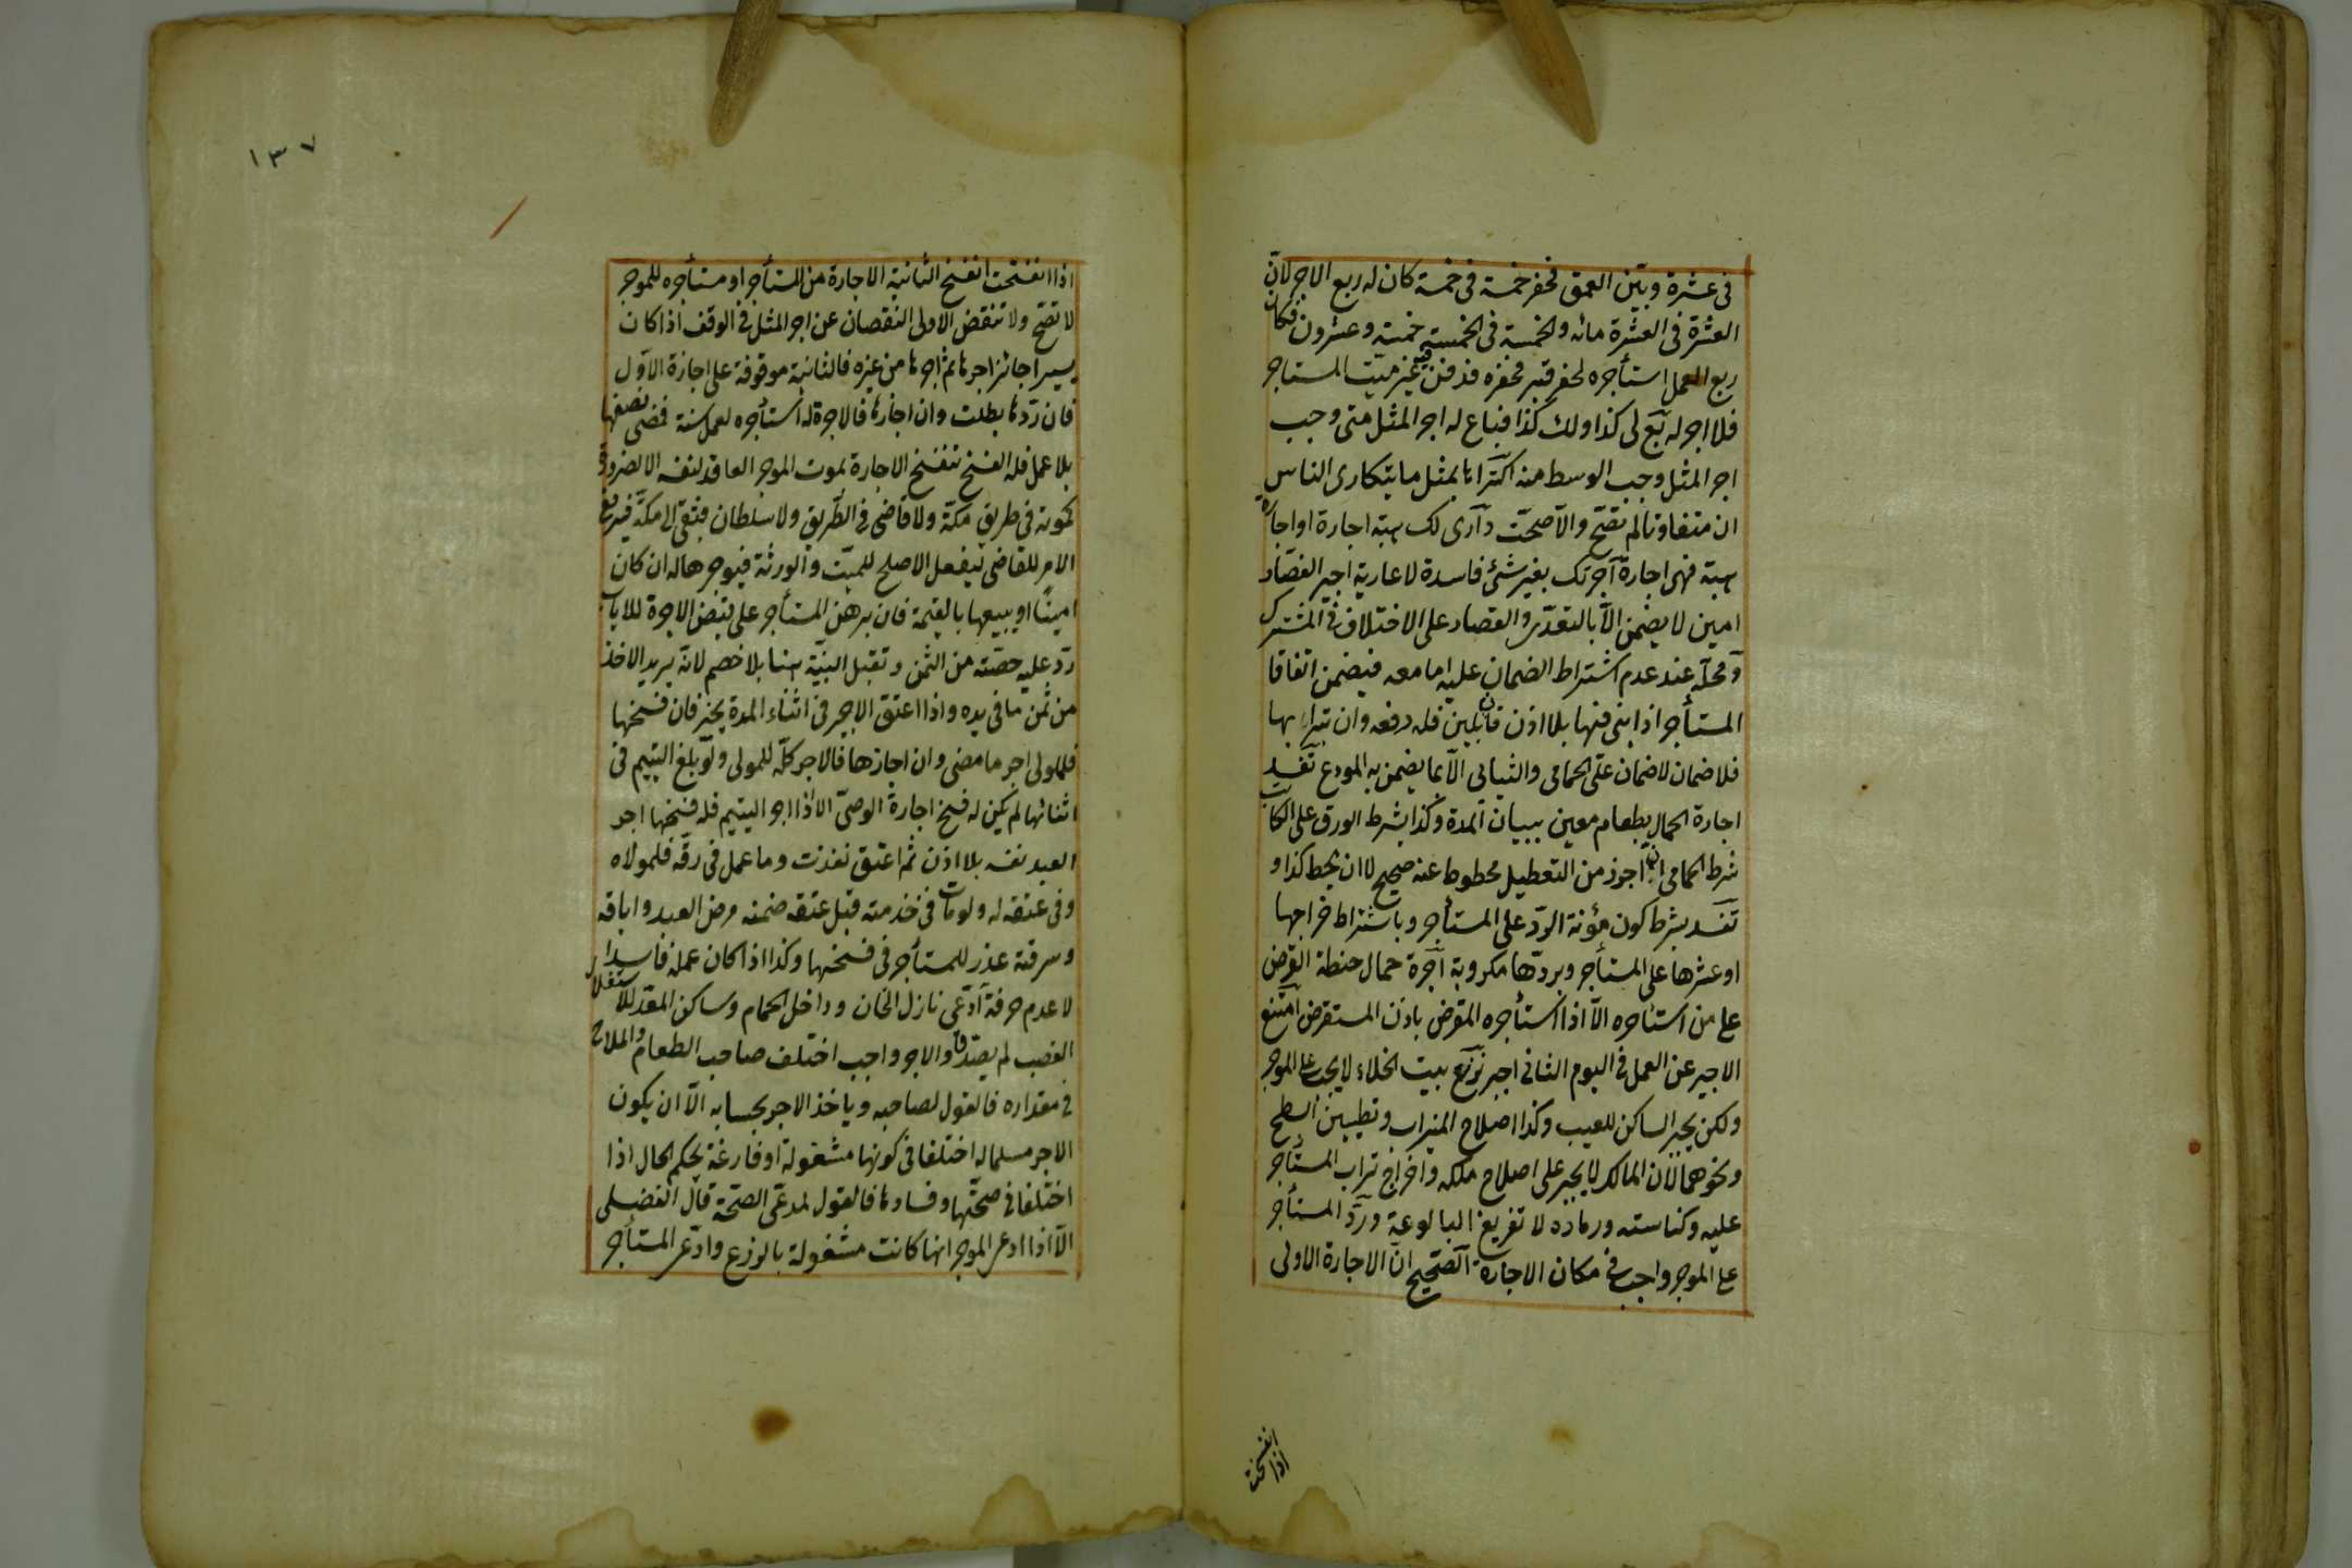 فى عشرة وبين العمق فحفر خمسة فى خمسة كان له ربع الاجر لان
العشرة فى العشرة مائه والخمسة فى الخمسة خمسة وعشرون فكان
ربع العمل استأجره لحفر قبر فحفره فدفن فيه غير ميت المستاجر
فلا اجر له بع لى كذا ولك كذا فباع له اجر المثل متى وجب
اجر المثل وجب الوسط منه اكتراها بمثل ما يتكارى الناس
ان متفاوتا لم تصح والا صحت دارى لك هبة اجارة او اجارة
هبة فهى اجارة آجرتك بغير شئ فاسدة لا عارية اجير القصار
امين لا يضمن الا بالتعدى والقصار على الاختلاف فى المشترك
ومحله عند عدم اشتراط الضمان عليه اما معه فيضمن اتفاقا
المستأجر اذا بنى فيها بلا اذن فان بلبن فله رفعه وان بترابها
فلا ضمان لا ضمان على الحمامى والثيابى الا بما يضمن به المودع تفسد
اجارة الحمال بطعام معين ببيان المدة وكذا بشرط الورق على الكاتب
شرط الحمامى ان اجر زمن التعطيل محطوط عنه صحيح لا ان يحط كذا و
تفسد بشرط كون مؤنة الرد على المستأجر وباشتراط خراجها
او عشرها على المستأجر وبردها مكروبة آجرة حمال حنطة القرض
على من استأجره الا اذا استأجره المقرض باذن المستقرض امتنع
الاجير عن العمل فى اليوم الثانى اجبر نزع بيت الخلاء لا يجب على الموجر
ولكن يخير الساكن للعيب وكذا اصلاح الميزاب وتطيين السطح
ونحوهما لان المالك لا يجبر على اصلاح ملكه واخراج تراب المستأجر
عليه وكناسته ورماده لا تفريغ البالوعة ورد المستأجر
على الموجر واجب فى مكان الاجارة الصحيح ان الاجارة الاولى
اذا انفسخت
١٣٧
اذا انفسخت انفسخ الثانية الاجارة من المستأجر او مستأجره للموجر
لا تصح ولا تنقض الاولى النقصان عن اجر المثل فى الوقف اذا كان
يسيرا جائز اجرها ثم اجرها من غيره فالثانية موقوفة على اجازة الاول
فان ردها بطلت وان اجازها فالاجرة له استأجره لعمل سنة فمضى نصفها
بلا عمل فله الفسخ تنفسخ الاجارة بموت الموجر العاقد لنفسه الا لضرورة
كموته فى طريق مكة ولا قاضى فى الطريق ولا سلطان فتبقى الى مكة فيرفع
الامر للقاضى ليفعل الاصلح للميت والورثة فيوجرها له ان كان
امينا او يبيعها بالقيمة فان برهن المستأجر على قبض الاجرة للاياب
رد عليه حصته من الثمن وتقبل البينة هنا بلا خصم لانه يريد الاخذ
من ثمن ما فى يده واذا اعتق الاجير فى اثناء المدة يخير فان فسخها
فللمولى اجر ما مضى وان اجازها فالاجر كله للمولى ولو بلغ اليتيم فى
اثنائها لم يكن له فسخ اجارة الوصى الا اذا اجر اليتيم فله فسخها اجر
العبد نفسه بلا اذن ثم اعتق نفذت وما عمل فى رقه فلمولاه
وفى عتقه له ولو مات فى خدمته قبل عتقه ضمنه مرض العبد واباقه
وسرقته عذر للمستأجر فى فسخها وكذا اذا كان عمله فاسدا
لا عدم حرفة ادعى نازل الخان وداخل الحمام وساكن المعد للاستغلال
الغصب لم يصدق والاجر واجب اختلف صاحب الطعام والملاح
فى مقداره فالقول لصاحبه وياخذ الاجر بحسابه الا ان يكون
الاجر مسلما له اختلفا فى كونها مشغولة او فارغة يحكم الحال اذا
اختلفا فى صحتها وفسادها فالقول لمدعى الصحة قال الفضلى
الا اذا ادعى الموجر انها كانت مشغولة بالزرع وادعى المستأجر